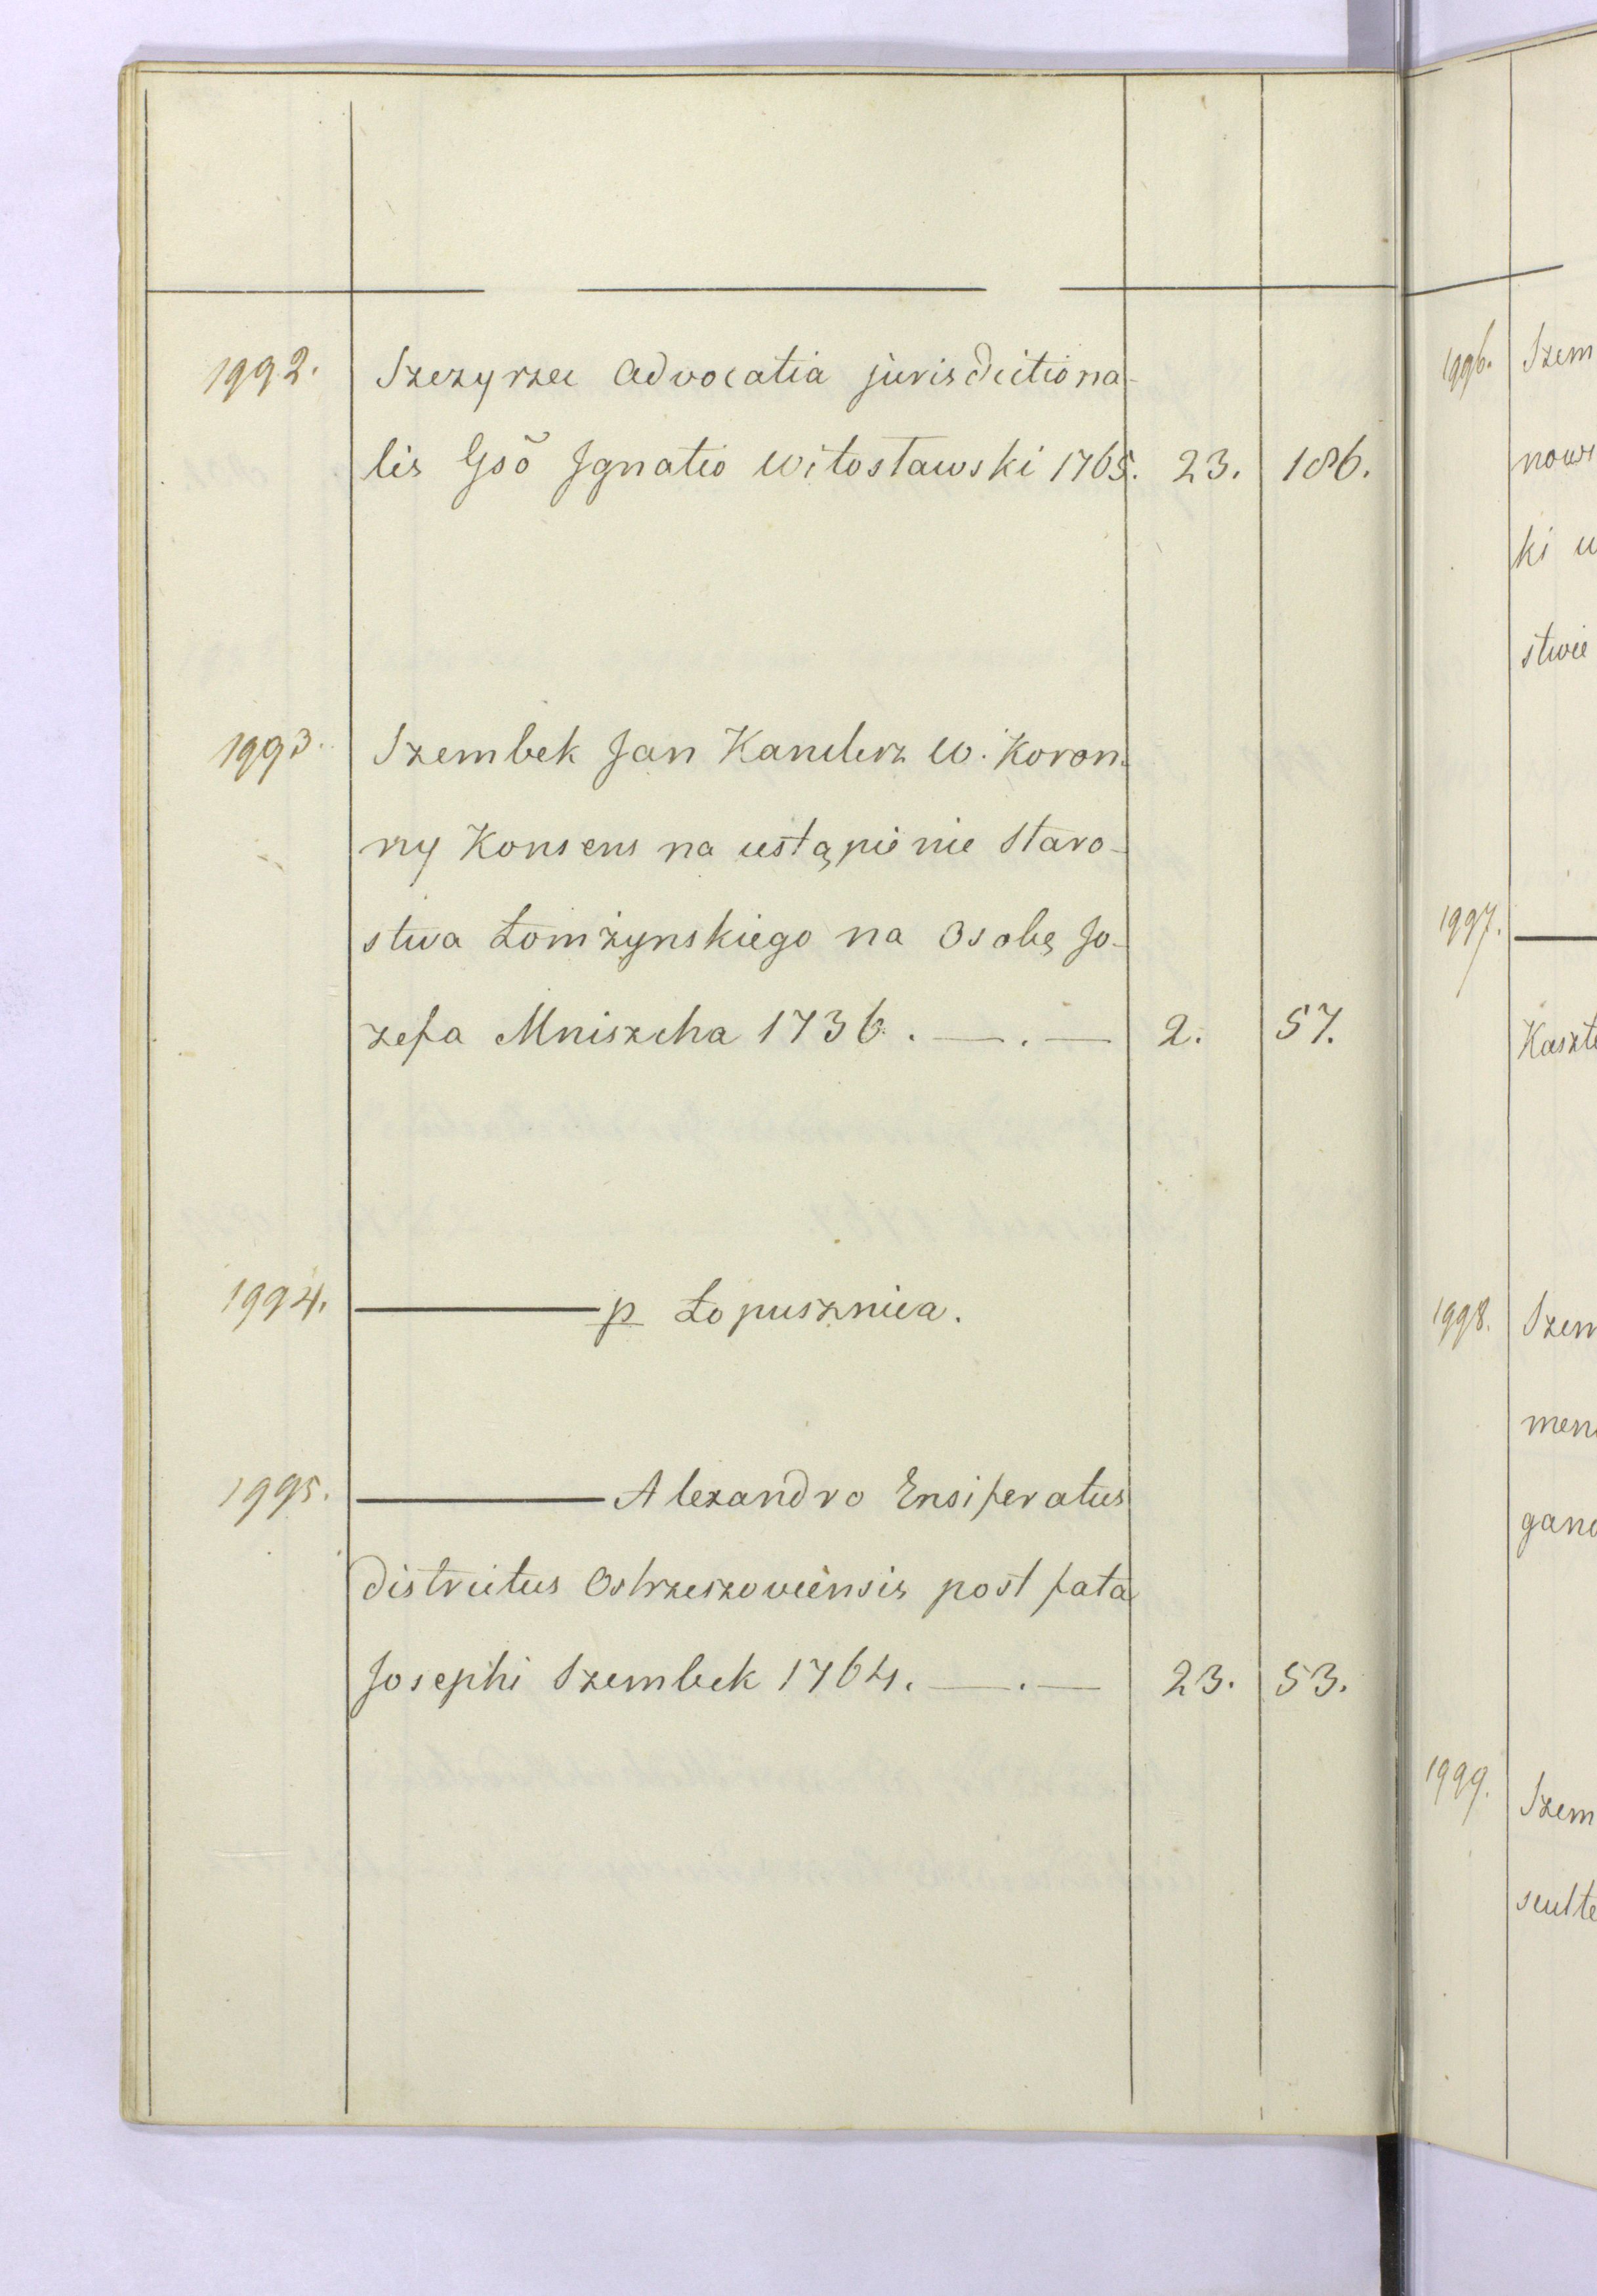 1992. Szczyrzec Advocatia jurisdictiona-
lis Gsõ Ignatio Witosławski 1765. 23. 186.
1993. Szembek Jan Kanclerz W. Koron-
ny Konsens na ustąpienie Staro-
stwa Łomżynskiego na Osobę Jo-
zefa Mniszcha 1736. — . — 2. 57.
1994. — p Łopusznica.
1995. — Alexandro Ensiferatus
districtus Ostrzeszoviensis post fata
Josephi Szembek 1764. — . — 23. 53.
1996. Szem
now
ki
stwie
1997. —
Kaszte
1998. Szem
men
gan
1999. Szem